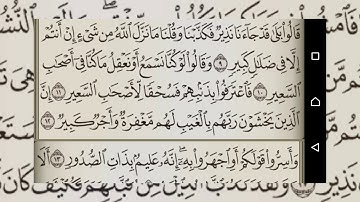 قَالُوا۟ بَلَىٰ قَدْ جَآءَنَا نَذِيرٌ فَكَذَّبْنَا وَقُلْنَا مَا نَزَّلَ ٱللَّهُ مِن شَىْءٍ إِنْ أَنتُمْ
إِلَّا فِى ضَلَٰلٍ كَبِيرٍ ٩ وَقَالُوا۟ لَوْ كُنَّا نَسْمَعُ أَوْ نَعْقِلُ مَا كُنَّا فِىٓ أَصْحَٰبِ
ٱلسَّعِيرِ ١٠ فَٱعْتَرَفُوا۟ بِذَنۢبِهِمْ فَسُحْقًا لِّأَصْحَٰبِ ٱلسَّعِيرِ ١١ إِنَّ
ٱلَّذِينَ يَخْشَوْنَ رَبَّهُم بِٱلْغَيْبِ لَهُم مَّغْفِرَةٌ وَأَجْرٌ كَبِيرٌ ١٢
وَأَسِرُّوا۟ قَوْلَكُمْ أَوِ ٱجْهَرُوا۟ بِهِۦٓ إِنَّهُۥ عَلِيمٌۢ بِذَاتِ ٱلصُّدُورِ ١٣ أَلَا